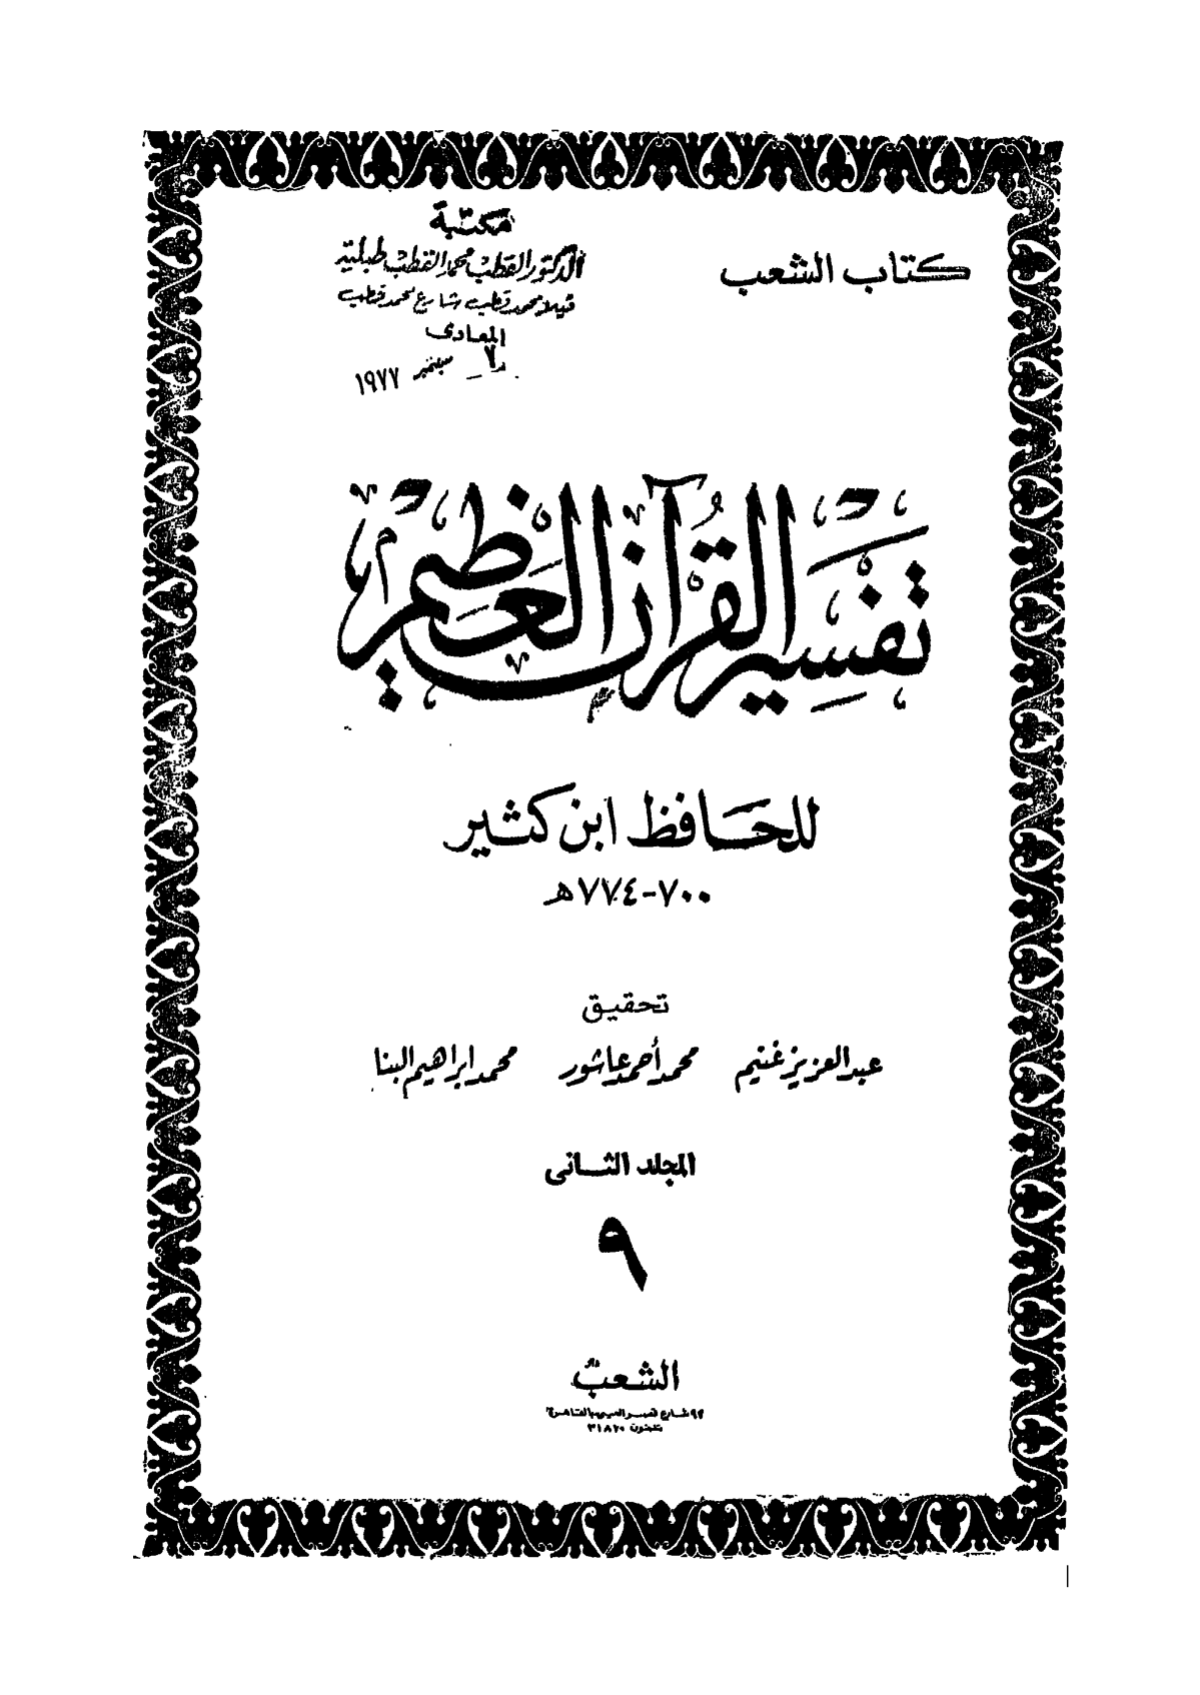 كتاب الشعب
مكتبة
الدكتور القطب محمد القطب طبلية
فيلا محمد قطب شارع محمد قطب
المعادى
سبتمبر ١٩٧٧
تَفسِير القُرآن العَظِيم
للحَافظ ابن كثير
٧٠٠-٧٧٤هـ
تحقيق
عبد العزيز غنيم محمد أحمد عاشور محمد ابراهيم البنا
المجلد الثانى
٩
دار الشعب
٩٢ شارع قصر العينى بالقاهرة
تليفون ٣١٨١٠